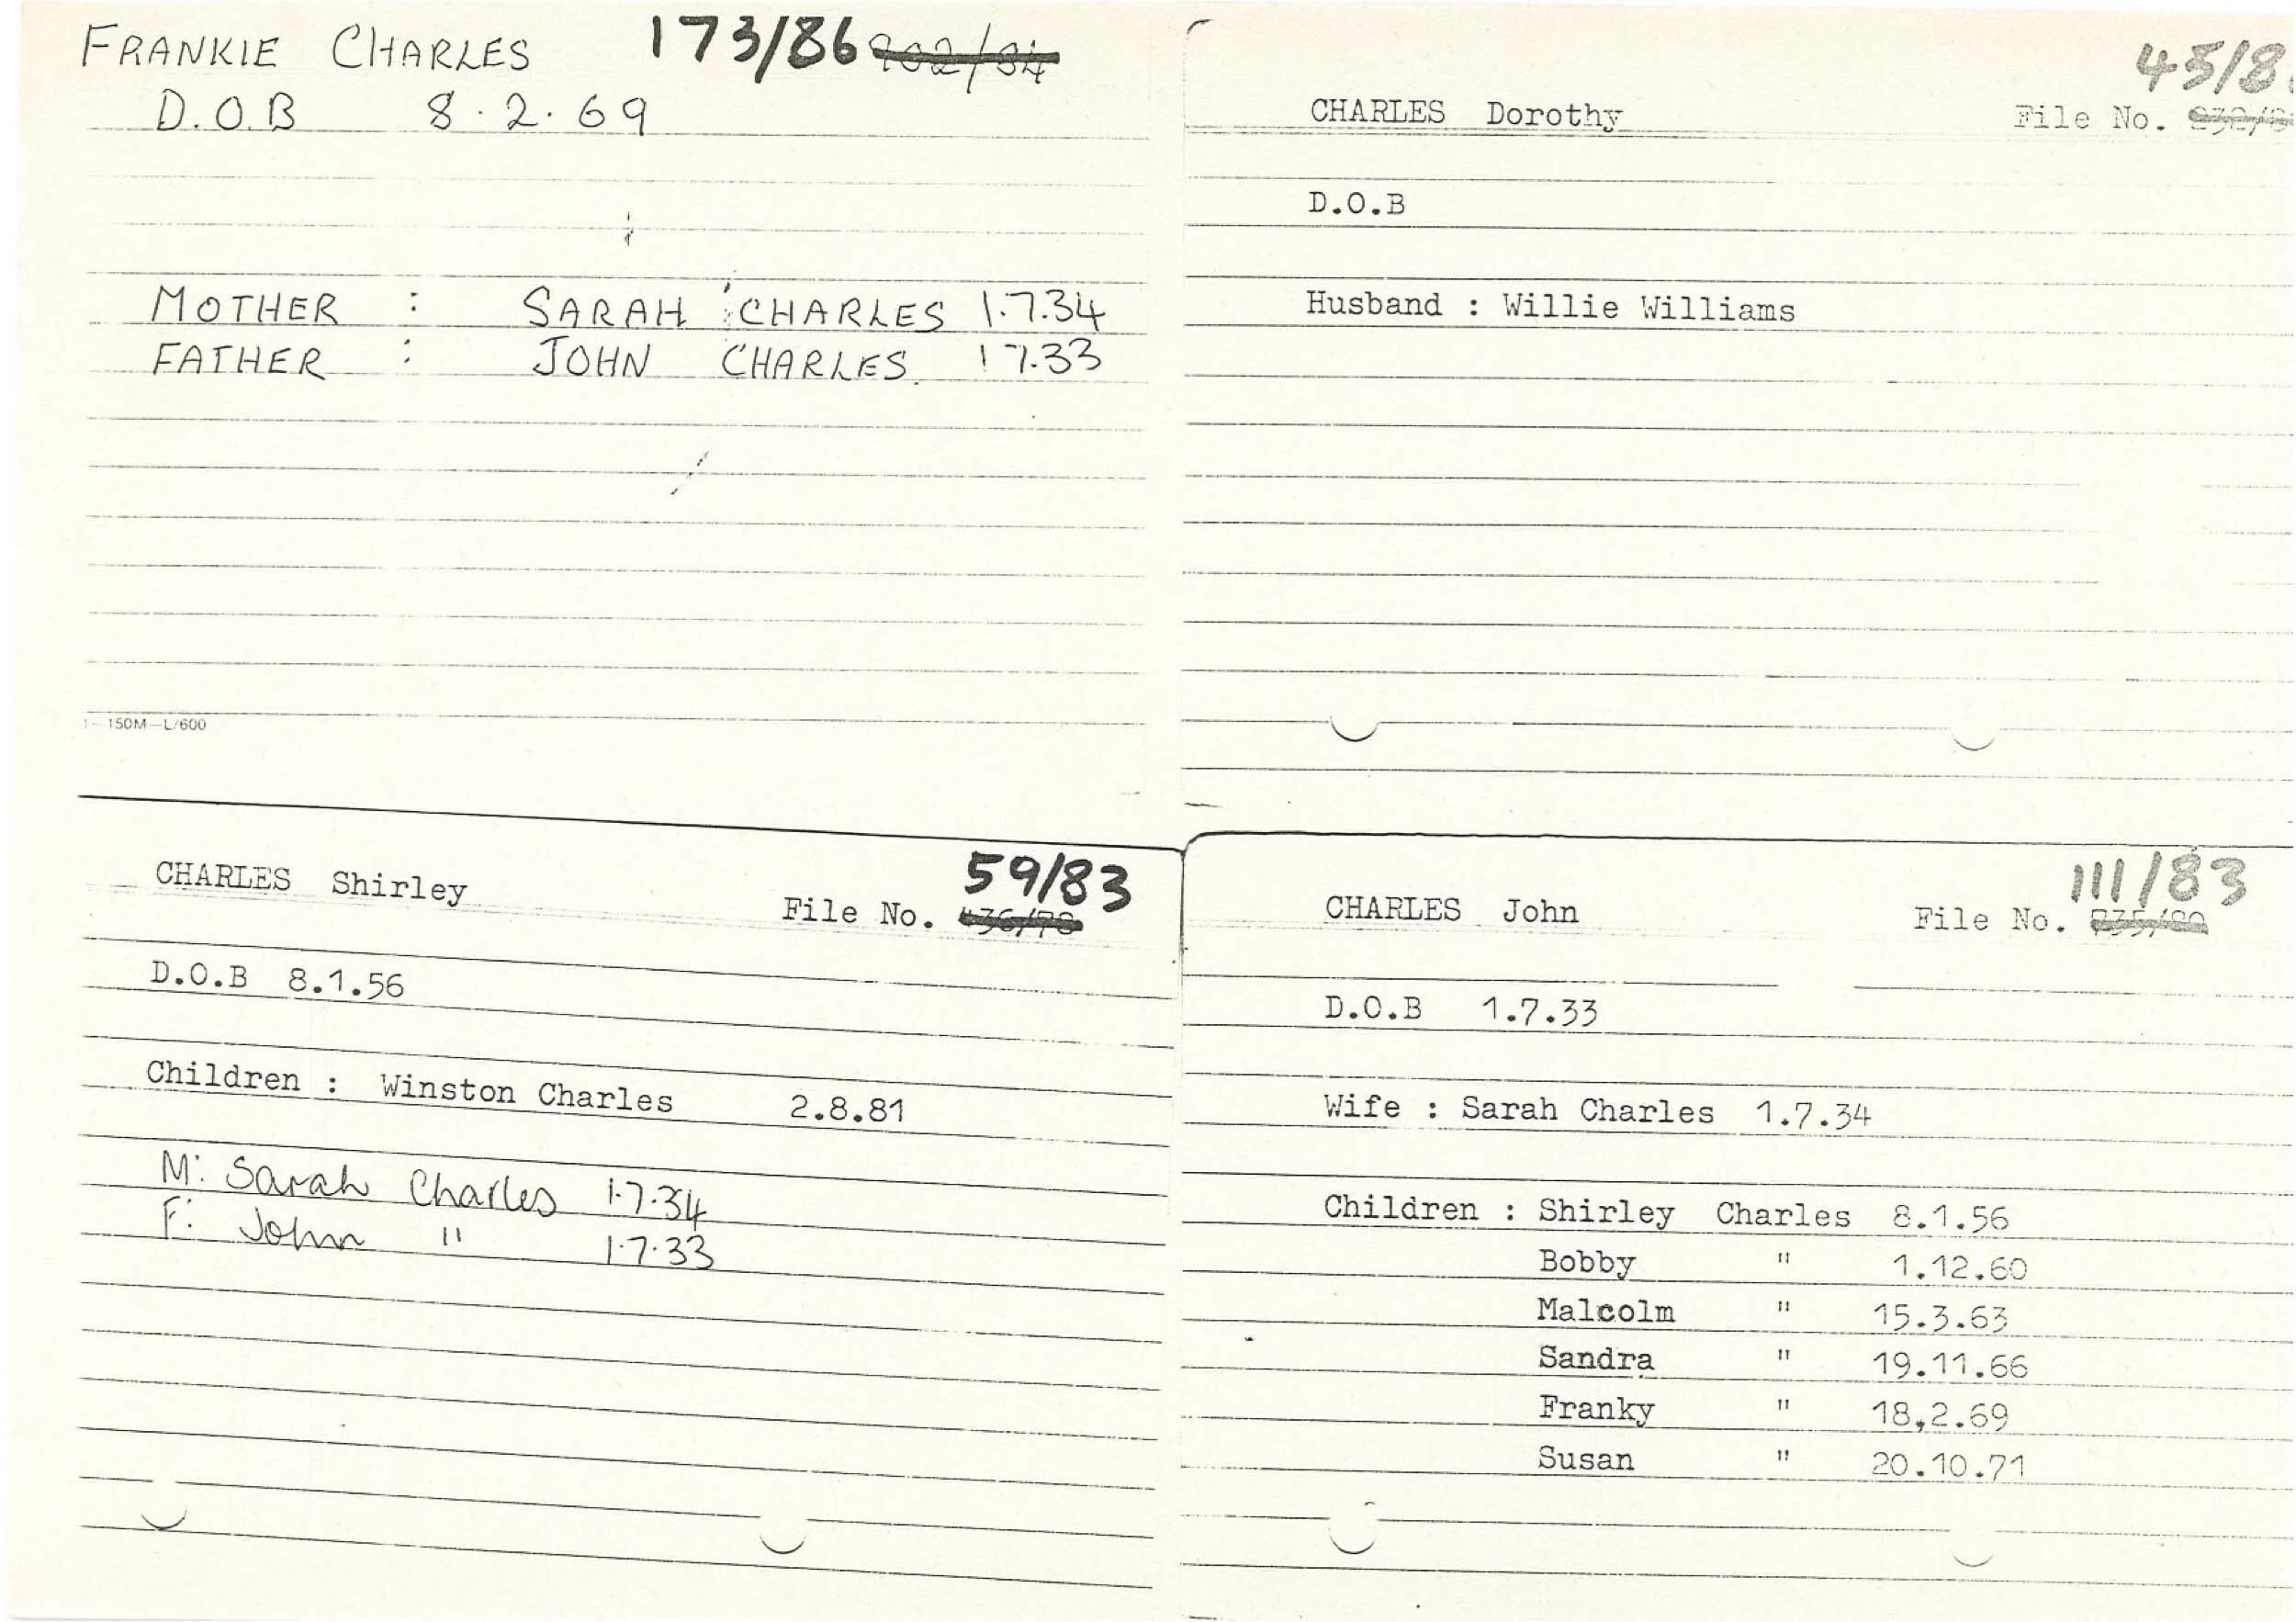 FRANKIE CHARLES 173/86
D.O.B 8.2.69
MOTHER : SARAH CHARLES 1.7.34
FATHER : JOHN CHARLES. 1 7.33
150M—L/600
45/8
CHARLES Dorothy File No.
D.O.B
Husband : Willie Williams
59/83
CHARLES Shirley File No. 436/78
D.O.B 8.1.56
Children : Winston Charles 2.8.81
M: Sarah Charles 1.7.34
F: John " 1.7.33
111/83
CHARLES John File No.
D.O.B 1.7.33
Wife : Sarah Charles 1.7.34
Children : Shirley Charles 8.1.56
Bobby " 1.12.60
Malcolm " 15.3.63
Sandra " 19.11.66
Franky " 18,2.69
Susan " 20.10.71